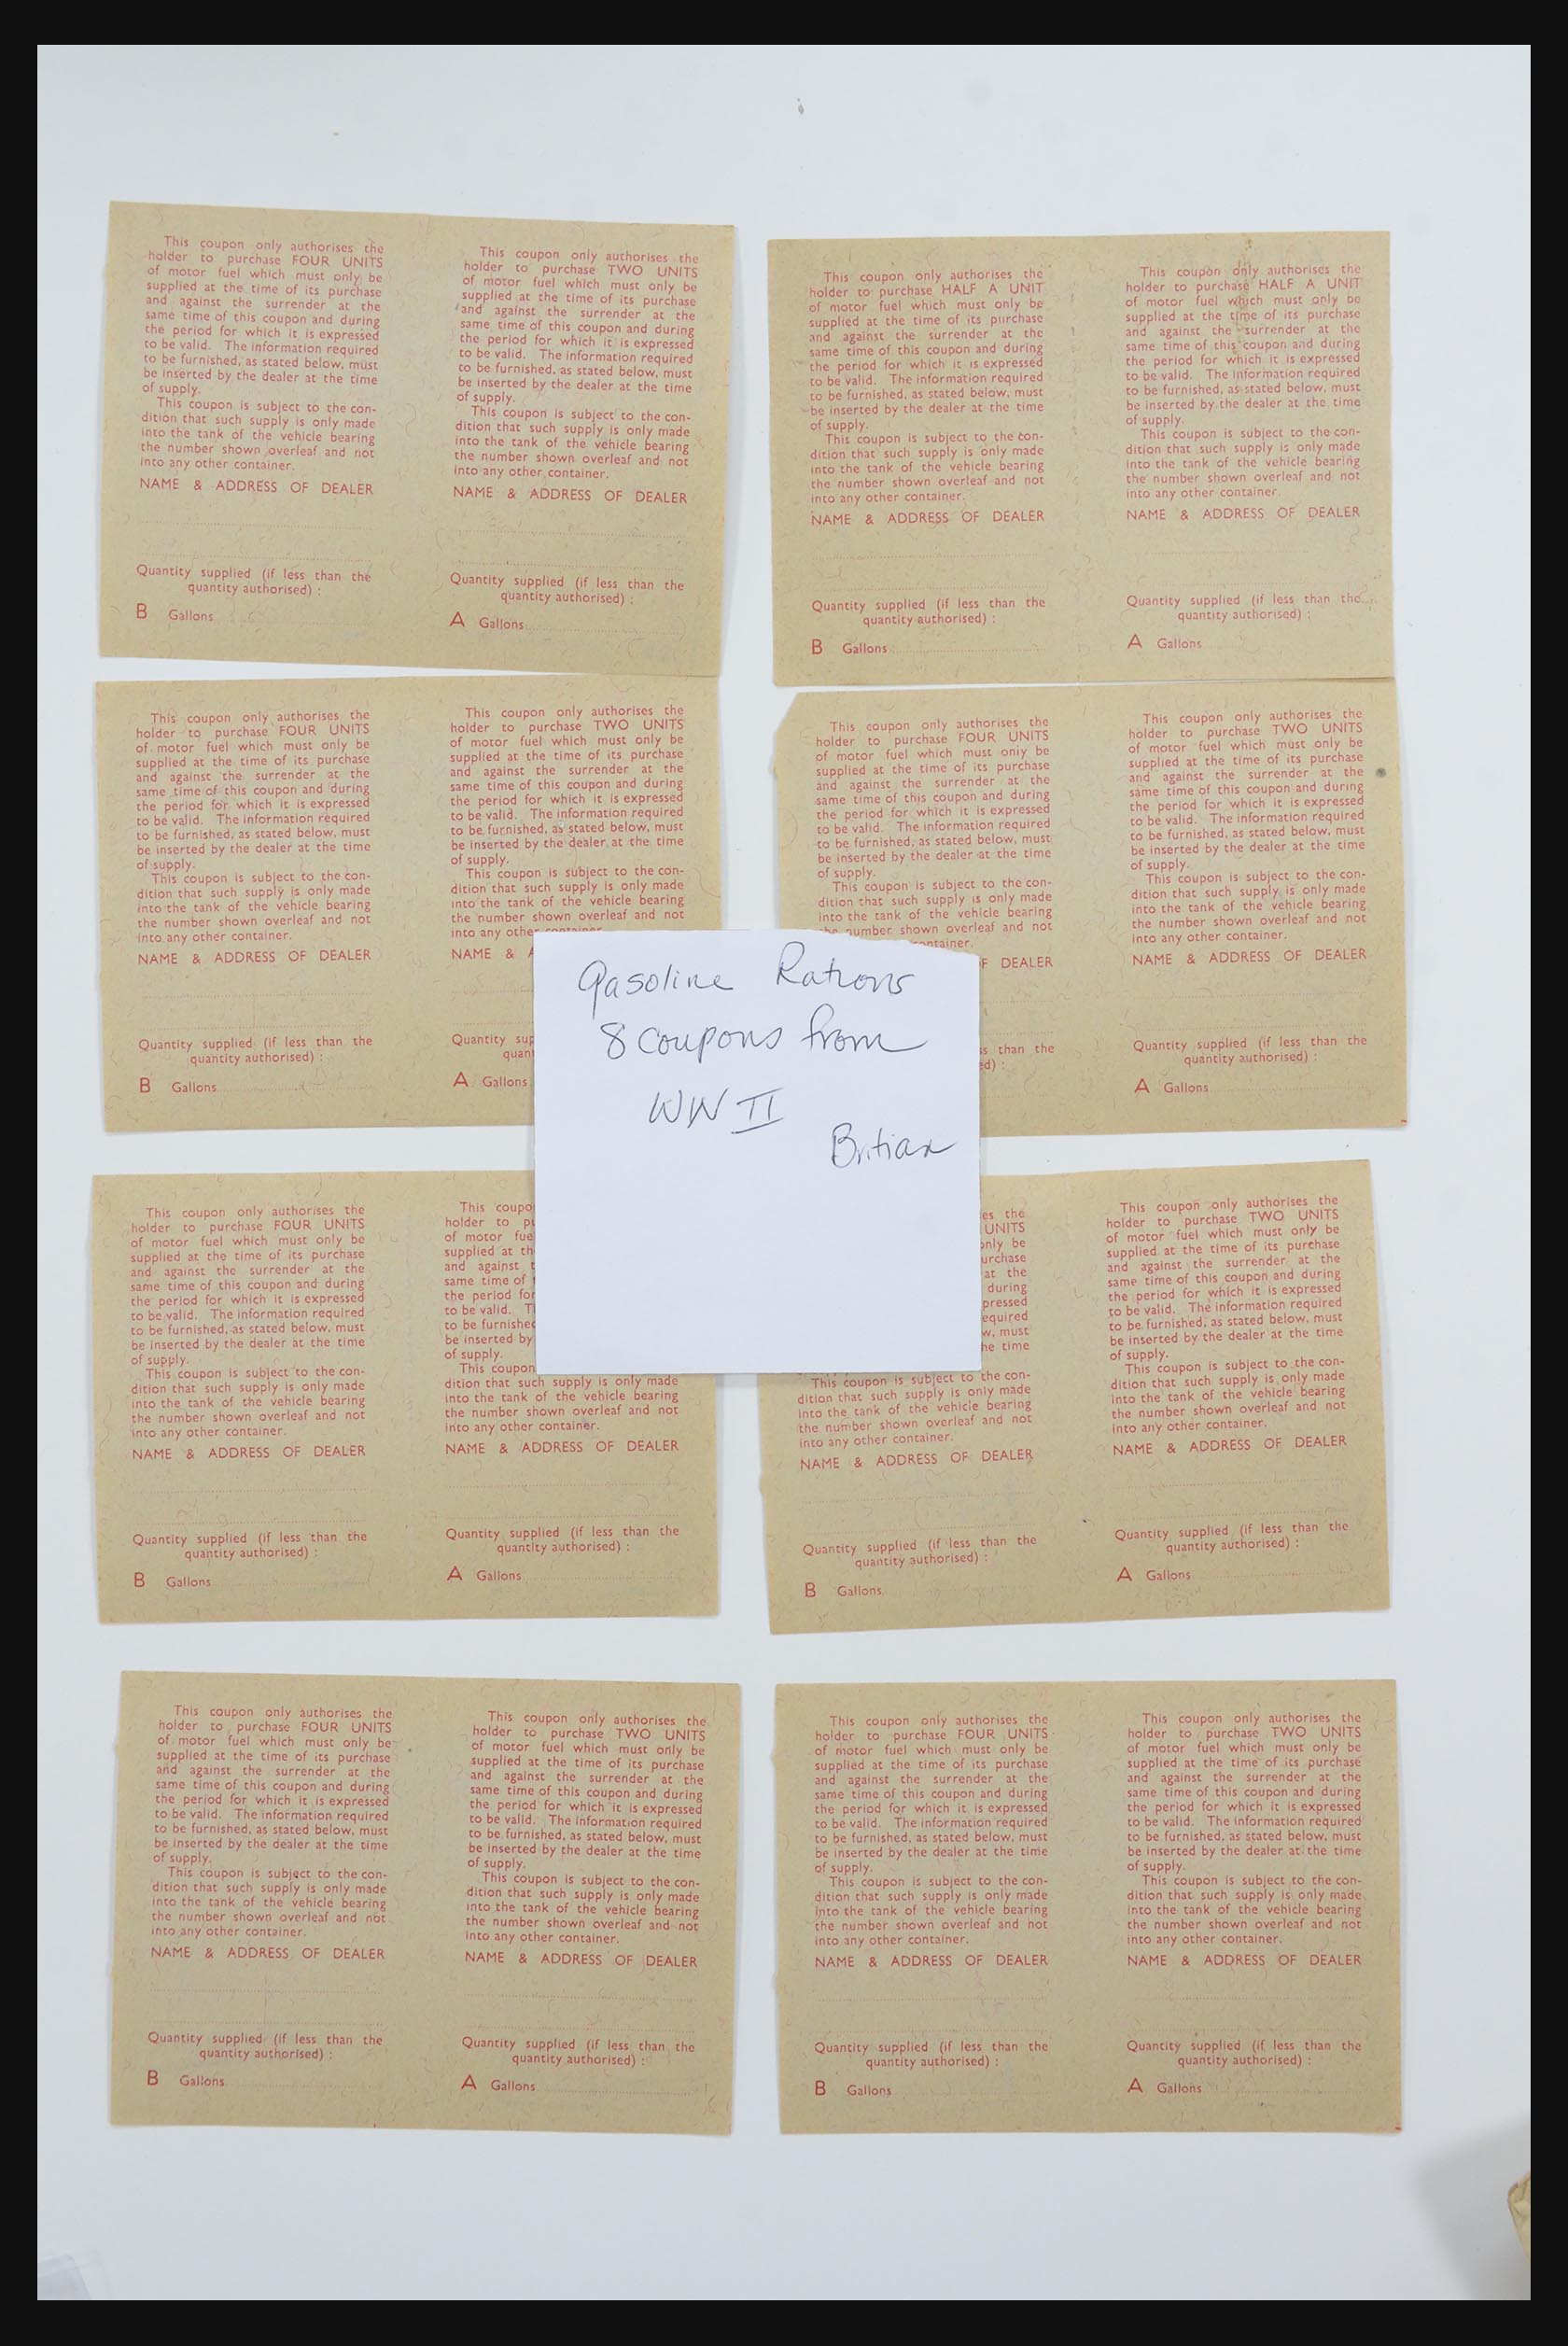 This coupon only authorises the
holder to purchase FOUR UNITS
of motor fuel which must only be
supplied at the time of its purchase
and against the surrender at the
same time of this coupon and during
the period for which it is expressed
to be valid. The information required
to be furnished, as stated below, must
be inserted by the dealer at the time
of supply.
This coupon is subject to the con-
dition that such supply is only made
into the tank of the vehicle bearing
the number shown overleaf and not
into any other container.
NAME & ADDRESS OF DEALER
Quantity supplied (if less than the
quantity authorised) :
B Gallons
This coupon only authorises the
holder to purchase TWO UNITS
of motor fuel which must only be
supplied at the time of its purchase
and against the surrender at the
same time of this coupon and during
the period for which it is expressed
to be valid. The information required
to be furnished, as stated below, must
be inserted by the dealer at the time
of supply.
This coupon is subject to the con-
dition that such supply is only made
into the tank of the vehicle bearing
the number shown overleaf and not
into any other container.
NAME & ADDRESS OF DEALER
Quantity supplied (if less than the
quantity authorised) :
A Gallons
This coupon only authorises the
holder to purchase HALF A UNIT
of motor fuel which must only be
supplied at the time of its purchase
and against the surrender at the
same time of this coupon and during
the period for which it is expressed
to be valid. The information required
to be furnished, as stated below, must
be inserted by the dealer at the time
of supply.
This coupon is subject to the con-
dition that such supply is only made
into the tank of the vehicle bearing
the number shown overleaf and not
into any other container.
NAME & ADDRESS OF DEALER
Quantity supplied (if less than the
quantity authorised) :
B Gallons
This coupon only authorises the
holder to purchase HALF A UNIT
of motor fuel which must only be
supplied at the time of its purchase
and against the surrender at the
same time of this coupon and during
the period for which it is expressed
to be valid. The information required
to be furnished, as stated below, must
be inserted by the dealer at the time
of supply.
This coupon is subject to the con-
dition that such supply is only made
into the tank of the vehicle bearing
the number shown overleaf and not
into any other container.
NAME & ADDRESS OF DEALER
Quantity supplied (if less than the
quantity authorised) :
A Gallons
This coupon only authorises the
holder to purchase FOUR UNITS
of motor fuel which must only be
supplied at the time of its purchase
and against the surrender at the
same time of this coupon and during
the period for which it is expressed
to be valid. The information required
to be furnished, as stated below, must
be inserted by the dealer at the time
of supply.
This coupon is subject to the con-
dition that such supply is only made
into the tank of the vehicle bearing
the number shown overleaf and not
into any other container.
NAME & ADDRESS OF DEALER
Quantity supplied (if less than the
quantity authorised) :
B Gallons
This coupon only authorises the
holder to purchase TWO UNITS
of motor fuel which must only be
supplied at the time of its purchase
and against the surrender at the
same time of this coupon and during
the period for which it is expressed
to be valid. The information required
to be furnished, as stated below, must
be inserted by the dealer at the time
of supply.
This coupon is subject to the con-
dition that such supply is only made
into the tank of the vehicle bearing
the number shown overleaf and not
into any other container.
NAME &
Quantity
A Gallons
This coupon only authorises the
holder to purchase FOUR UNITS
of motor fuel which must only be
supplied at the time of its purchase
and against the surrender at the
same time of this coupon and during
the period for which it is expressed
to be valid. The information required
to be furnished, as stated below, must
be inserted by the dealer at the time
of supply.
This coupon is subject to the con-
dition that such supply is only made
into the tank of the vehicle bearing
the number shown overleaf and not
container.
DEALER
than the
This coupon only authorises the
holder to purchase TWO UNITS
of motor fuel which must only be
supplied at the time of its purchase
and against the surrender at the
same time of this coupon and during
the period for which it is expressed
to be valid. The information required
to be furnished, as stated below, must
be inserted by the dealer at the time
of supply.
This coupon is subject to the con-
dition that such supply is only made
into the tank of the vehicle bearing
the number shown overleaf and not
into any other container.
NAME & ADDRESS OF DEALER
Quantity supplied (if less than the
quantity authorised) :
A Gallons
Gasoline Rations
8 coupons from
WW II
Britian
This coupon only authorises the
holder to purchase FOUR UNITS
of motor fuel which must only be
supplied at the time of its purchase
and against the surrender at the
same time of this coupon and during
the period for which it is expressed
to be valid. The information required
to be furnished, as stated below, must
be inserted by the dealer at the time
of supply.
This coupon is subject to the con-
dition that such supply is only made
into the tank of the vehicle bearing
the number shown overleaf and not
into any other container.
NAME & ADDRESS OF DEALER
Quantity supplied (if less than the
quantity authorised) :
B Gallons
This
holder to
of motor
supplied at
and against
same time of
the period for
to be valid.
to be
be inserted by
of supply.
This coupon
dition that such supply is only made
into the tank of the vehicle bearing
the number shown overleaf and not
into any other container.
NAME & ADDRESS OF DEALER
Quantity supplied (if less than the
quantity authorised) :
A Gallons
the
UNITS
only be
at the
during
must
time
This coupon is subject to the con-
dition that such supply is only made
into the tank of the vehicle bearing
the number shown overleaf and not
into any other container.
NAME & ADDRESS OF DEALER
Quantity supplied (if less than the
quantity authorised) :
B Gallons
This coupon only authorises the
holder to purchase TWO UNITS
of motor fuel which must only be
supplied at the time of its purchase
and against the surrender at the
same time of this coupon and during
the period for which it is expressed
to be valid. The information required
to be furnished, as stated below, must
be inserted by the dealer at the time
of supply.
This coupon is subject to the con-
dition that such supply is only made
into the tank of the vehicle bearing
the number shown overleaf and not
into any other container.
NAME & ADDRESS OF DEALER
Quantity supplied (if less than the
quantity authorised) :
A Gallons
This coupon only authorises the
holder to purchase FOUR UNITS
of motor fuel which must only be
supplied at the time of its purchase
and against the surrender at the
same time of this coupon and during
the period for which it is expressed
to be valid. The information required
to be furnished, as stated below, must
be inserted by the dealer at the time
of supply.
This coupon is subject to the con-
dition that such supply is only made
into the tank of the vehicle bearing
the number shown overleaf and not
into any other container.
NAME & ADDRESS OF DEALER
Quantity supplied (if less than the
quantity authorised) :
B Gallons
This coupon only authorises the
holder to purchase TWO UNITS
of motor fuel which must only be
supplied at the time of its purchase
and against the surrender at the
same time of this coupon and during
the period for which it is expressed
to be valid. The information required
to be furnished, as stated below, must
be inserted by the dealer at the time
of supply.
This coupon is subject to the con-
dition that such supply is only made
into the tank of the vehicle bearing
the number shown overleaf and not
into any other container.
NAME & ADDRESS OF DEALER
Quantity supplied (if less than the
quantity authorised) :
A Gallons
This coupon only authorises the
holder to purchase FOUR UNITS
of motor fuel which must only be
supplied at the time of its purchase
and against the surrender at the
same time of this coupon and during
the period for which it is expressed
to be valid. The information required
to be furnished, as stated below, must
be inserted by the dealer at the time
of supply.
This coupon is subject to the con-
dition that such supply is only made
into the tank of the vehicle bearing
the number shown overleaf and not
into any other container.
NAME & ADDRESS OF DEALER
Quantity supplied (if less than the
quantity authorised) :
B Gallons
This coupon only authorises the
holder to purchase TWO UNITS
of motor fuel which must only be
supplied at the time of its purchase
and against the surrender at the
same time of this coupon and during
the period for which it is expressed
to be valid. The information required
to be furnished, as stated below, must
be inserted by the dealer at the time
of supply.
This coupon is subject to the con-
dition that such supply is only made
into the tank of the vehicle bearing
the number shown overleaf and not
into any other container.
NAME & ADDRESS OF DEALER
Quantity supplied (if less than the
quantity authorised) :
A Gallons